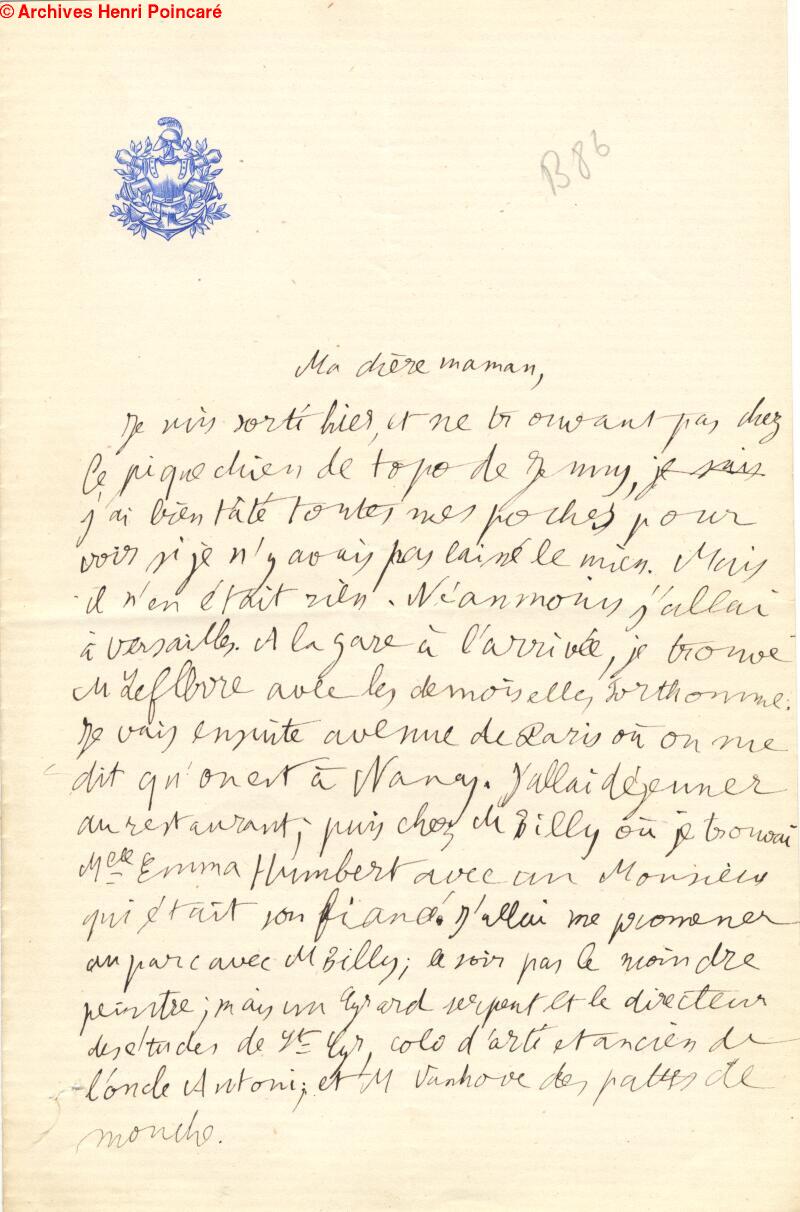 © Archives Henri Poincaré
B 86
Ma chère maman,
Je suis sorti hier, et ne trouvant pas chez
ce pique chien de topo de Jenny, je suis
j'ai bien tâté toutes mes poches pour
voir si je n'y avais pas laissé le mien. Mais
il n'en était rien. Néanmoins j'allai
à Versailles. A la gare à l'arrivée, je trouve
M Lefebvre avec les demoiselles Sorthomme.
Je vais ensuite avenue de Paris où on me
dit qu'on est à Nancy. J'allai déjeuner
au restaurant; puis chez M Billy où je trouvai
Melle Emma Humbert avec un Monsieur
qui était son fiancé. J'allai me promener
au parc avec M Billy; le soir pas le moindre
peintre; mais un Eyrard serpent et le directeur
des études de St Cyr, colo d'arti et ancien de
l'oncle Antoni; et M Vanhove des pattes de
mouche.